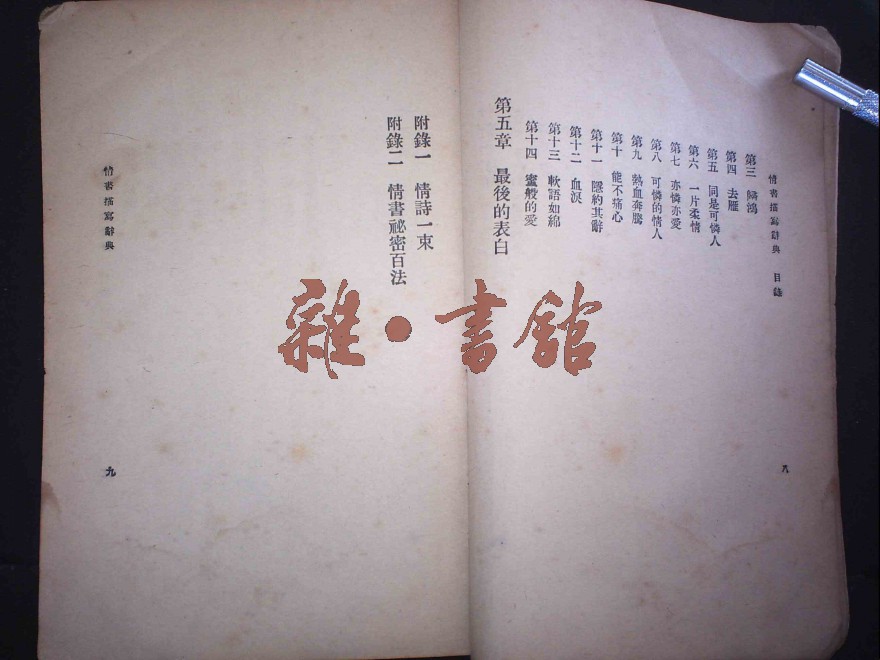 情書描寫辭典 目錄
第三 歸鴻
第四 去雁
第五 同是可憐人
第六 一片柔情
第七 亦憐亦愛
第八 可憐的情人
第九 熱血奔騰
第十 能不痛心
第十一 隱約其辭
第十二 血淚
第十三 軟語如綿
第十四 蜜般的愛
第五章 最後的表白
八
附錄一 情詩一束
附錄二 情書祕密百法
情書描寫辭典
九
雜·書館